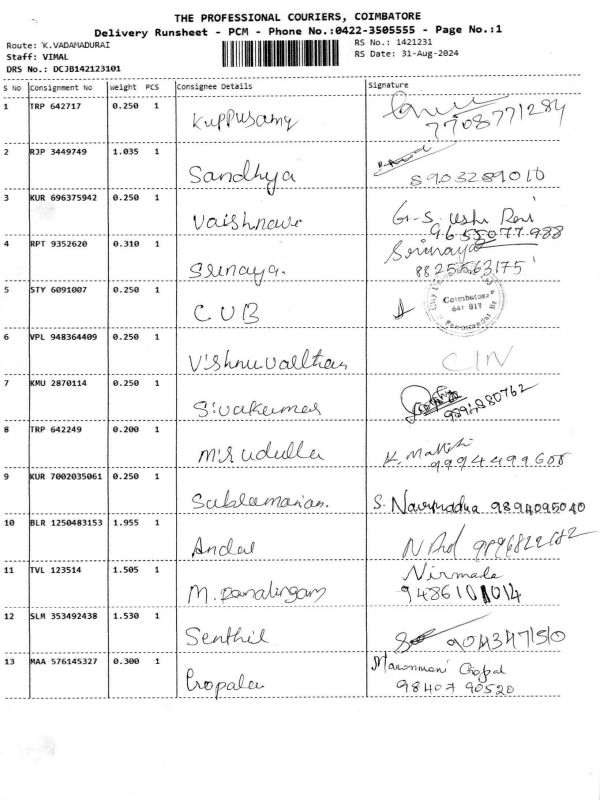 THE PROFESSIONAL COURIERS, COIMBATORE
Delivery Runsheet - PCM - Phone No.:0422-3505555 - Page No.:1
Route: K.VADAMADURAI
RS No.: 1421231
Staff: VIMAL
RS Date: 31-Aug-2024
DRS No.: DCJB142123101
S No Consignment No Weight PCS Consignee Details Signature
1 TRP 642717 0.250 1 Kuppusamy
7708771284
2 RJP 3449749 1.035 1 Sandhya
8903289010
3 KUR 696375942 0.250 1 Vaishnavi G.S. Usha Rani
9655077988
4 RPT 9352620 0.310 1 Srinaya. Srinaya
8825563175
5 STY 6091007 0.250 1 C.U.B
Coimbatore
641 017
6 VPL 948364409 0.250 1 Vishnuvalthan
7 KMU 2870114 0.250 1 Sivakumar
8 TRP 642249 0.200 1
9994499600
9 KUR 7002035061 0.250 1 S. 9894095040
10 BLR 1250483153 1.955 1 Andal
11 TVL 123514 1.505 1 M. Nirmala
12 SLM 353492438 1.530 1 Senthil
9043471510
13 MAA 576145327 0.300 1 Gopala Gopal
98407 90520